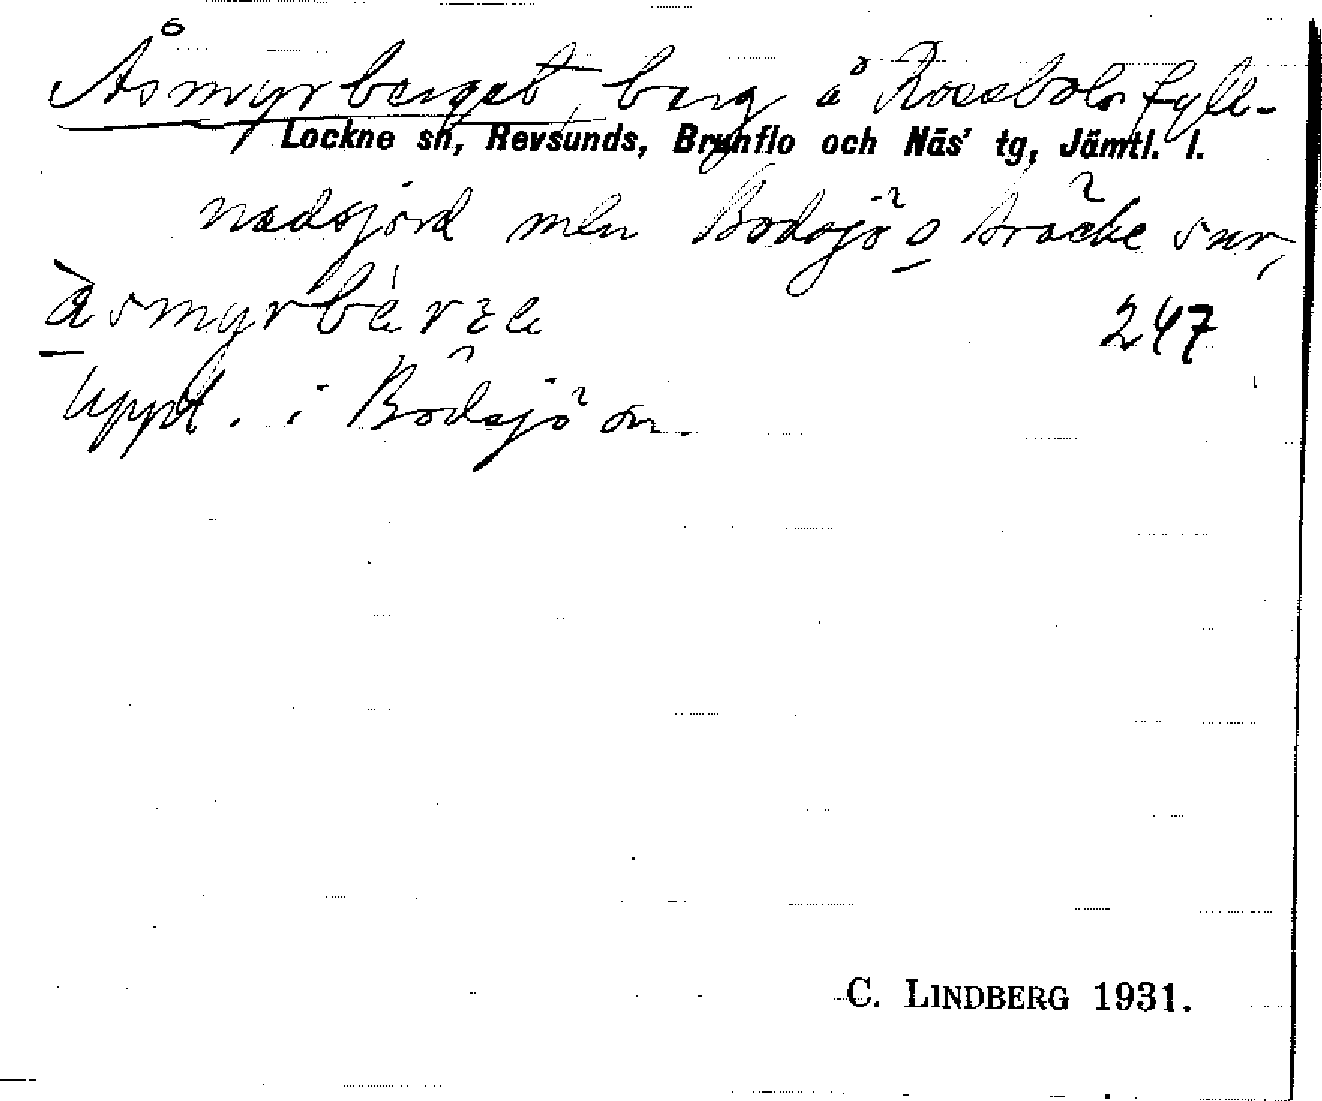 Åsmyrberget, berg å Rossbols fyll-
Lockne sn, Revsunds, Brunflo och Näs' tg, Jämtl. l.
nadsjord mellan Bodsjö o Bräcke snr,
åsmyrbè̀rʒe 247
Uppt. i Bodsjö sn.
C. LINDBERG 1931.